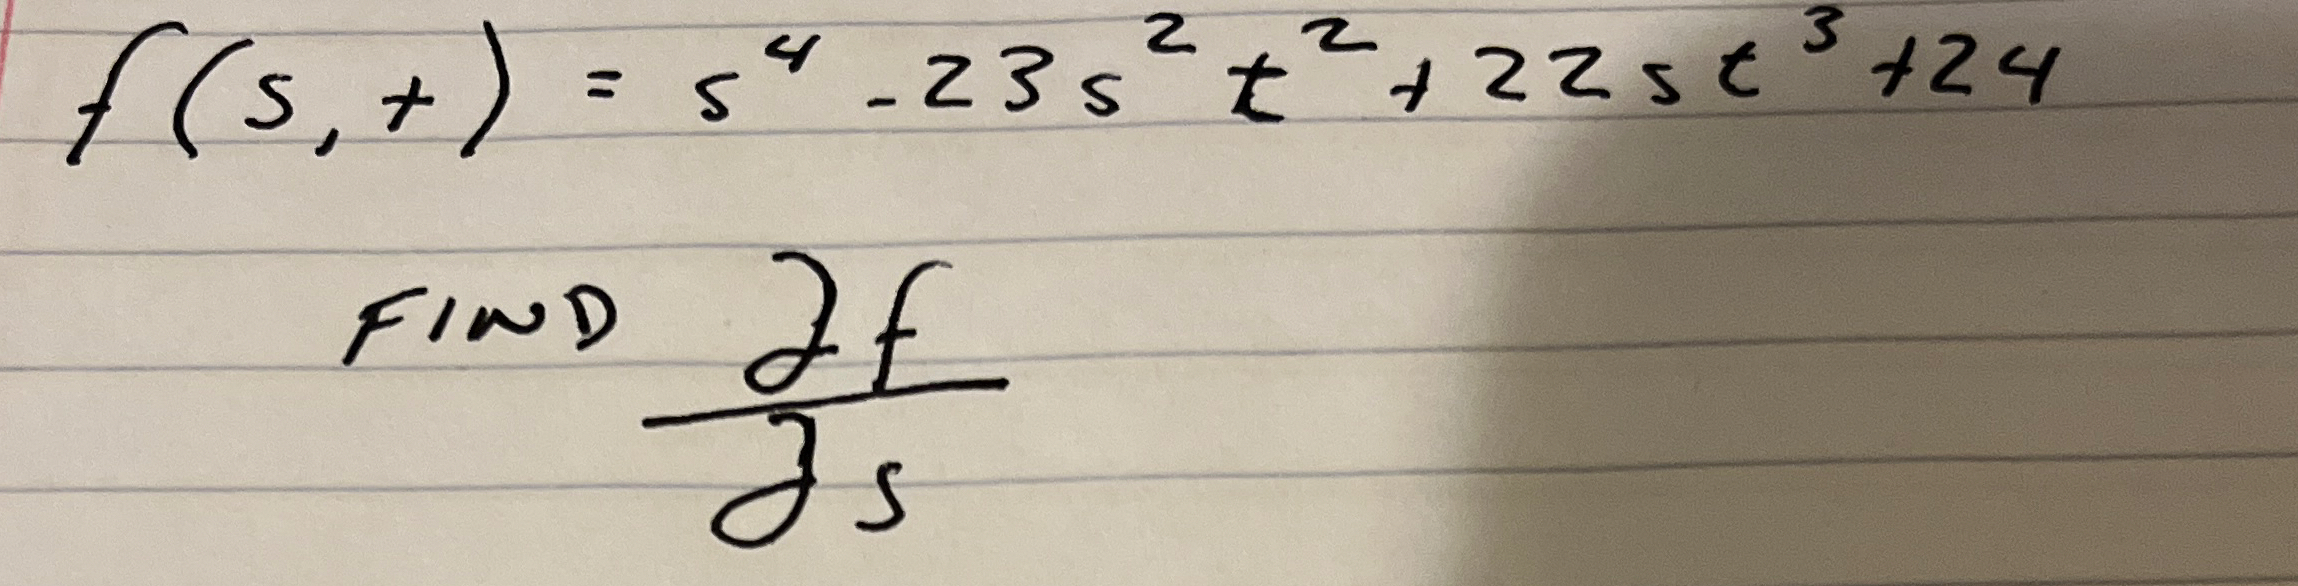 f(s,t) = s⁴ - 23s²t² + 22st³ + 24
FIND ∂f
∂s